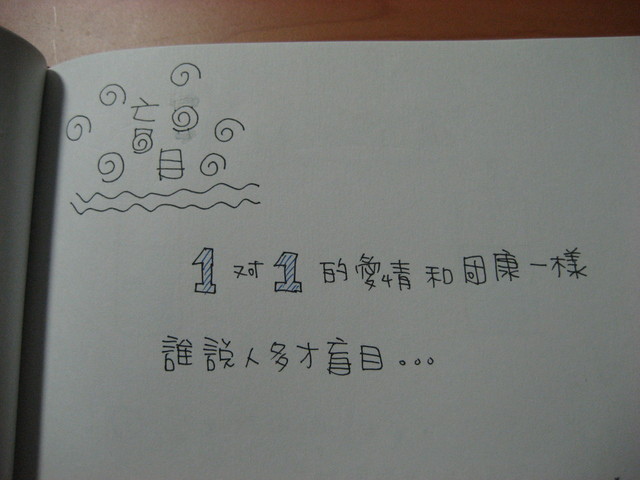 盲目
1对1的愛情和团康一樣
誰說人多才盲目...